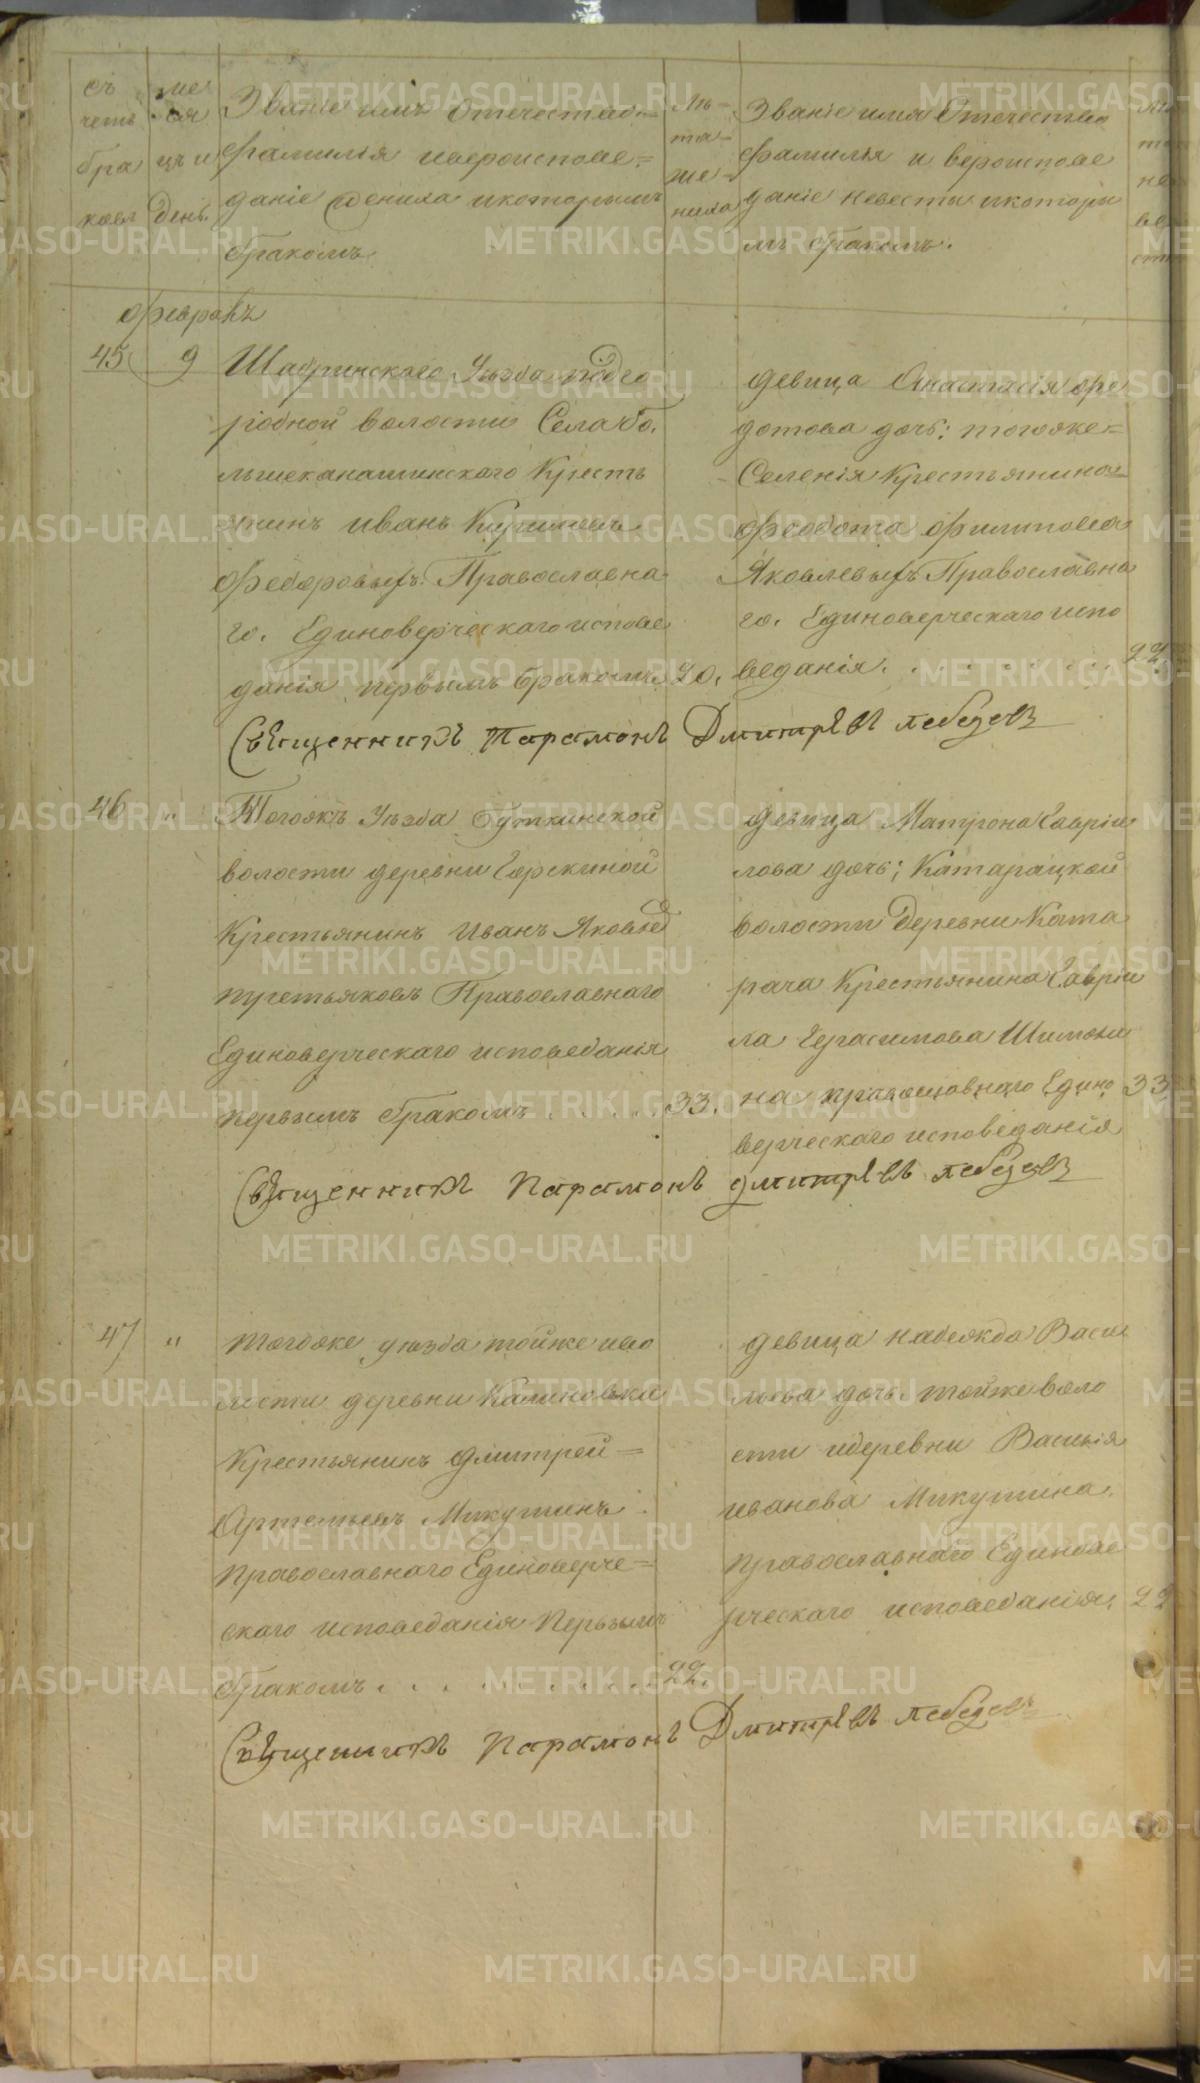 счетъ браковъ
месяцъ и день
Званіе имя Отечество
фамилія и вероиспове=
даніе жениха и которымъ
бракомъ
лета жениха
Званіе имя Отечество
фамилія и вероиспове
даніе невесты и которы
мъ бракомъ.
февраль
45 9
Шадринскаго Уезда
волости Села Бо
льшеканашинскаго Кресть
янин иванъ
Федоровыхъ. Православна
го. Единоверческаго испове
данія первымъ бракомъ 20.
девица Анастасія фе
дотова дочь: тогоже=
Селенія Крестьянина=
Феодота филипова
Яковлевыхъ Православна
го. Единоверческаго испо
веданія. 22
Священникъ Парамонъ Дмитріевъ Лебедевъ
46 "
Тогожъ Уезда Буткинской
волости деревни Горскиной
Крестьянинъ Иванъ Яковлев
третьяковъ Православнаго
Единоверческаго исповеданія
первымъ бракомъ . . . . . 33.
девица Матрона Гавріи
лова дочь; Катарацкой
волости Деревни Ката
рача Крестьянина Гавріи
ла Герасимова
на православнаго Едино 33
верческаго исповеданія
Священникъ Парамонъ дмитріевъ лебедевъ
47 "
тогоже уезда тойже во
лости деревни Калиновка
Крестьянинъ дмитрей=
Артемьевъ Микушинъ
православнаго Единоверче=
скаго исповеданія Первымъ
бракомъ . . . . . . . . 22.
девица надежда Васи
льева дочь. тойже воло
сти и деревни Василія
иванова Микушина.
православнаго Единове
рческаго исповеданія. 22
Священникъ Парамонъ Дмитріевъ лебедевъ
METRIKI.GASO-URAL.RU